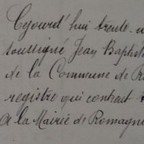 Cejourd'hui trente
soussigné Jean Baptist
de la Commune de R
registre qui contient
à la Mairie de Romagne